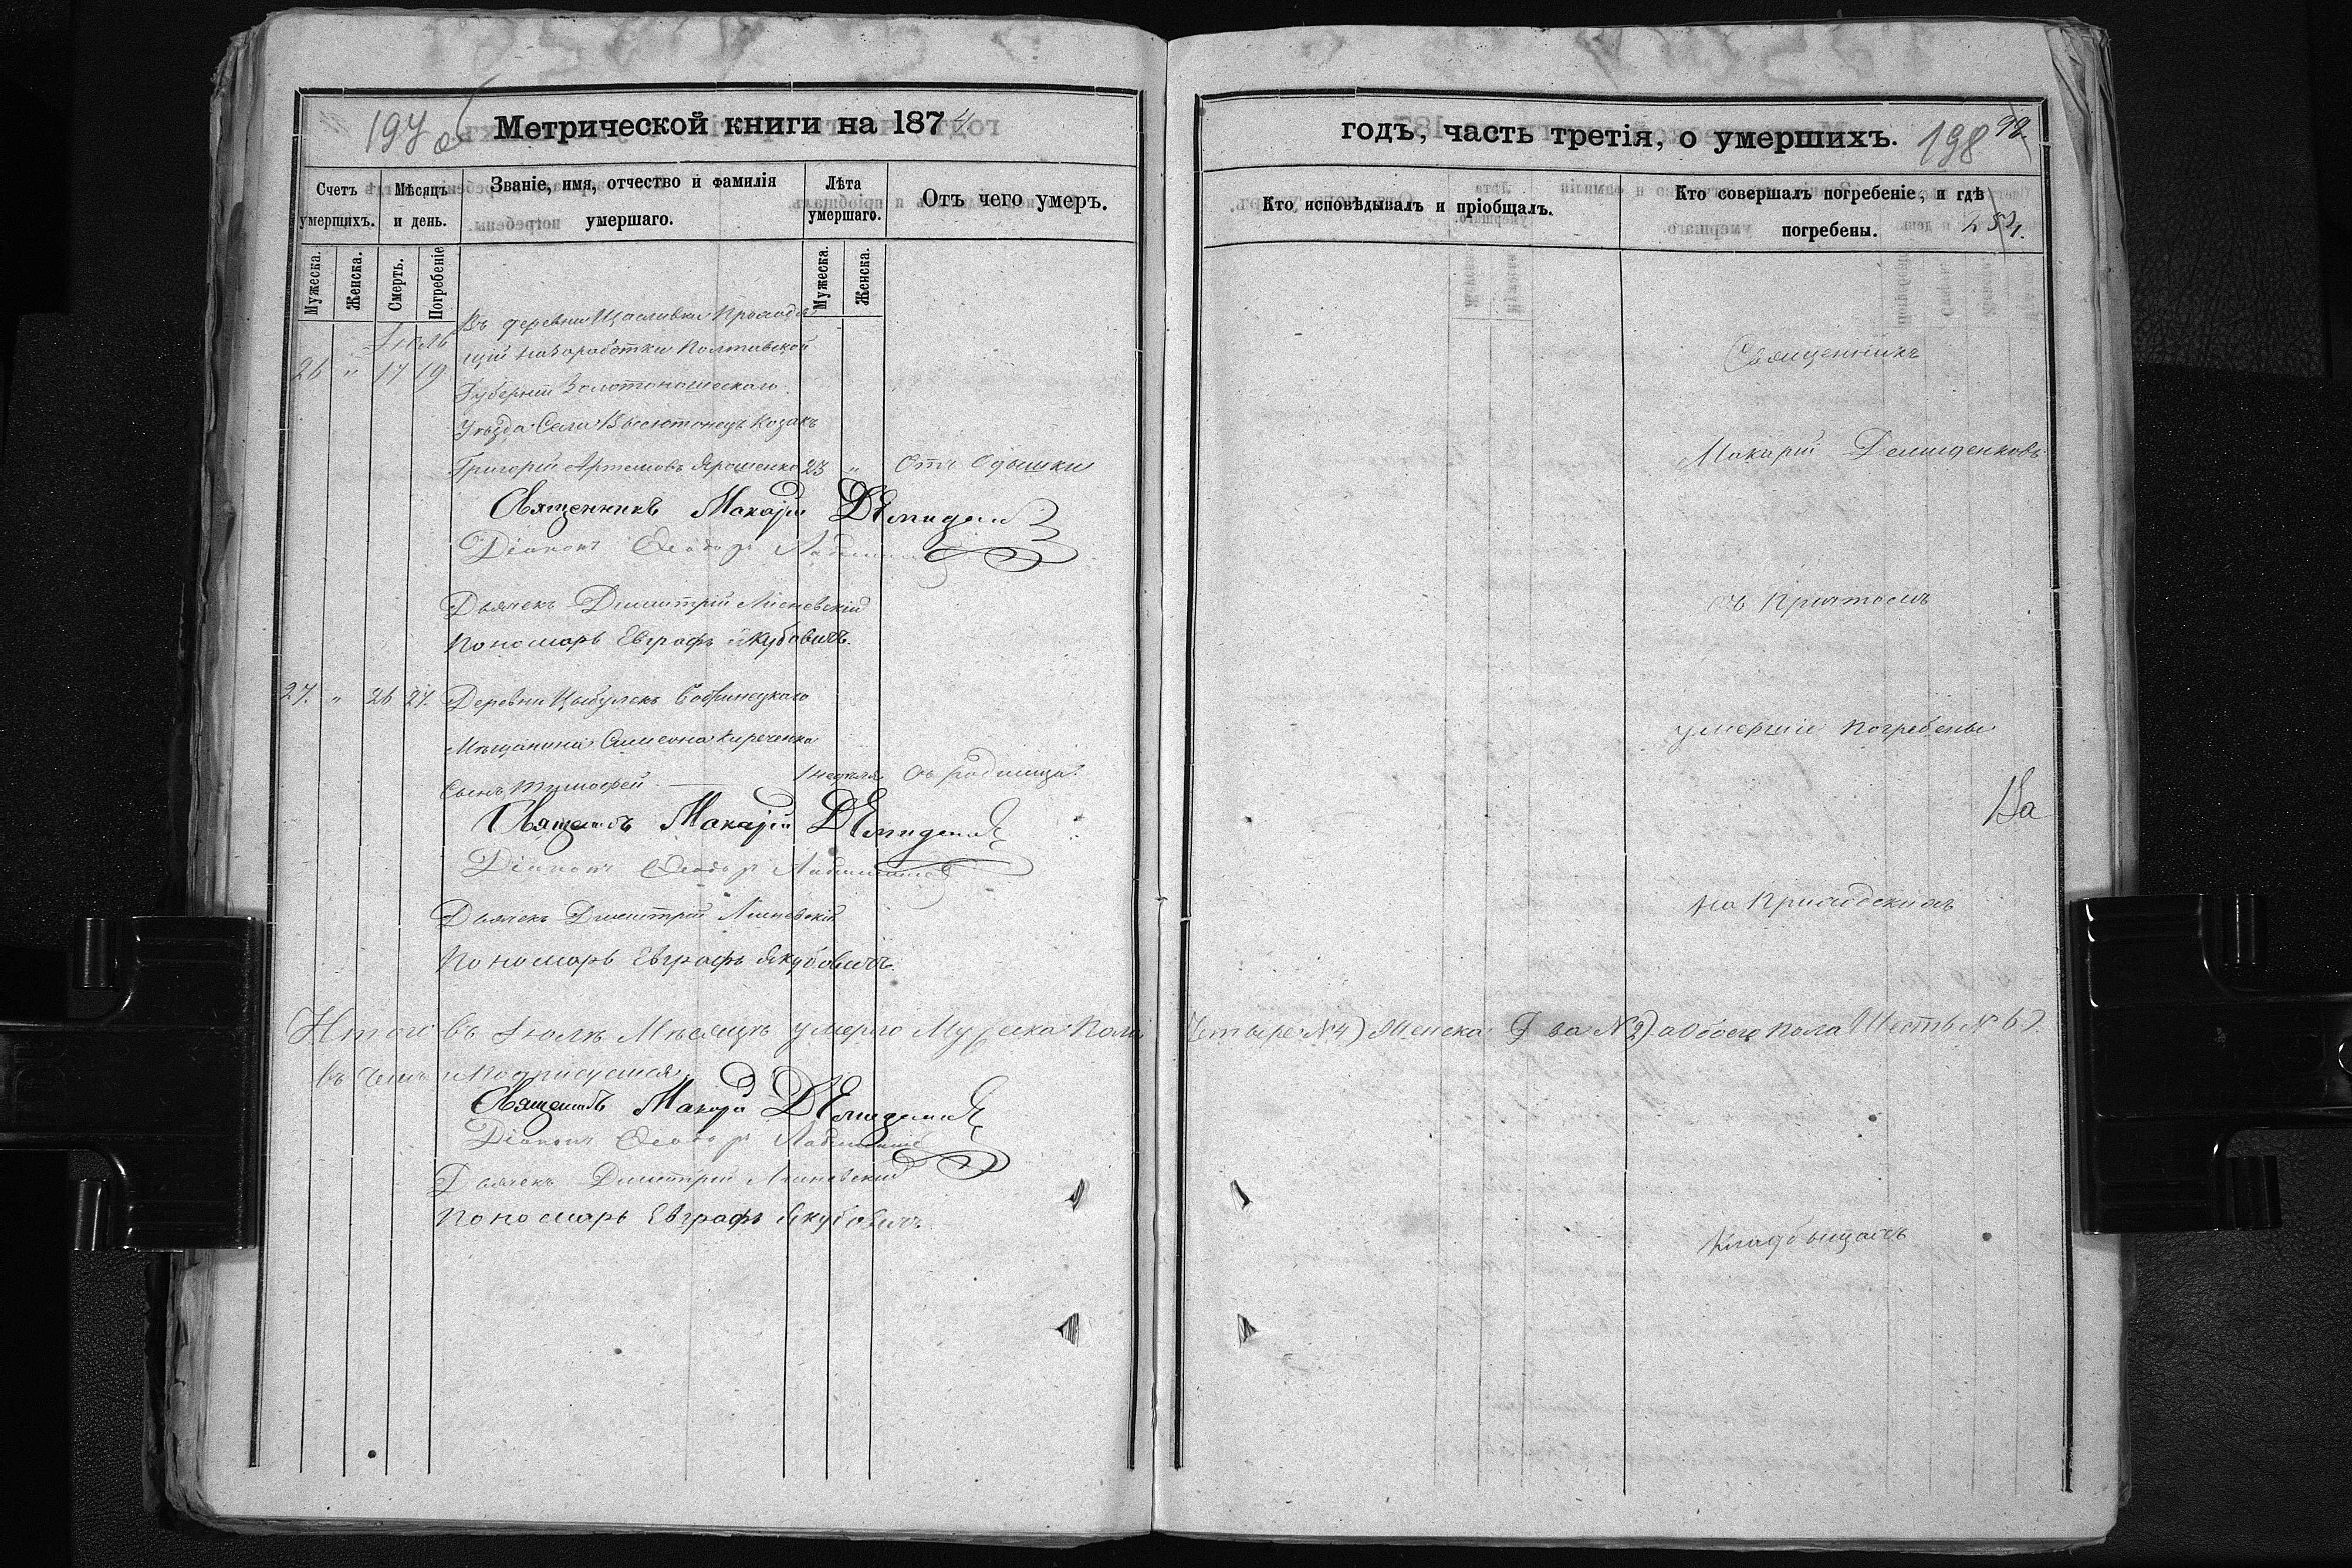 197 об
Метрической книги на 1874
Счетъ умершихъ.
Мѣсяцъ и день.
Званіе, имя, отчество и фамилія умершаго.
Лѣта умершаго.
Отъ чего умеръ.
Мужеска.
Женска.
Смерть.
Погребеніе
Мужеска.
Женска.
Іюль
Въ деревни Щасливки Проходя
щій на Заработки Полтавской
26 " 17 19 Губерніи Золотоношескаго
Уѣзда Села Козакъ
Григорій Артемовъ Ярошенко 23 " Отъ Одышки
Священникъ Макарій Демиденк
Діаконъ Ѳеодоръ
Дьячекъ Димитрій Лісневскій
Пономарь Евграфъ Якубовичъ.
27. " 26 27. Деревни Цыбулекъ Бобринецкаго
Мѣщанина Симеона Киреченка
Сынъ Тимофей — 1 недѣля Съ родимца.
Священникъ Макарій Демиденк
Діаконъ Ѳеодоръ
Дьячекъ Димитрій Лисневскій
Пономарь Евграфъ Якубовичъ.
Итого въ Іюлѣ Мѣсяцѣ умерло Мужеска Пола
въ чемъ и Подписуемся
Священникъ Макарій Демиденк
Діаконъ Ѳеодоръ
Дьячекъ Димитрій Лисневскій
Пономарь Евграфъ Якубовичъ
годъ, часть третія, о умершихъ.
198
Кто исповѣдывалъ и пріобщалъ.
Кто совершалъ погребеніе, и гдѣ погребены.
Священникъ
Макарій Демиденковъ
съ Причтомъ
умершіе Погребены
На Приходскихъ
Четыре № 4) Женска Два № 2) а Обоего Пола Шесть № 6).
Кладбыщахъ